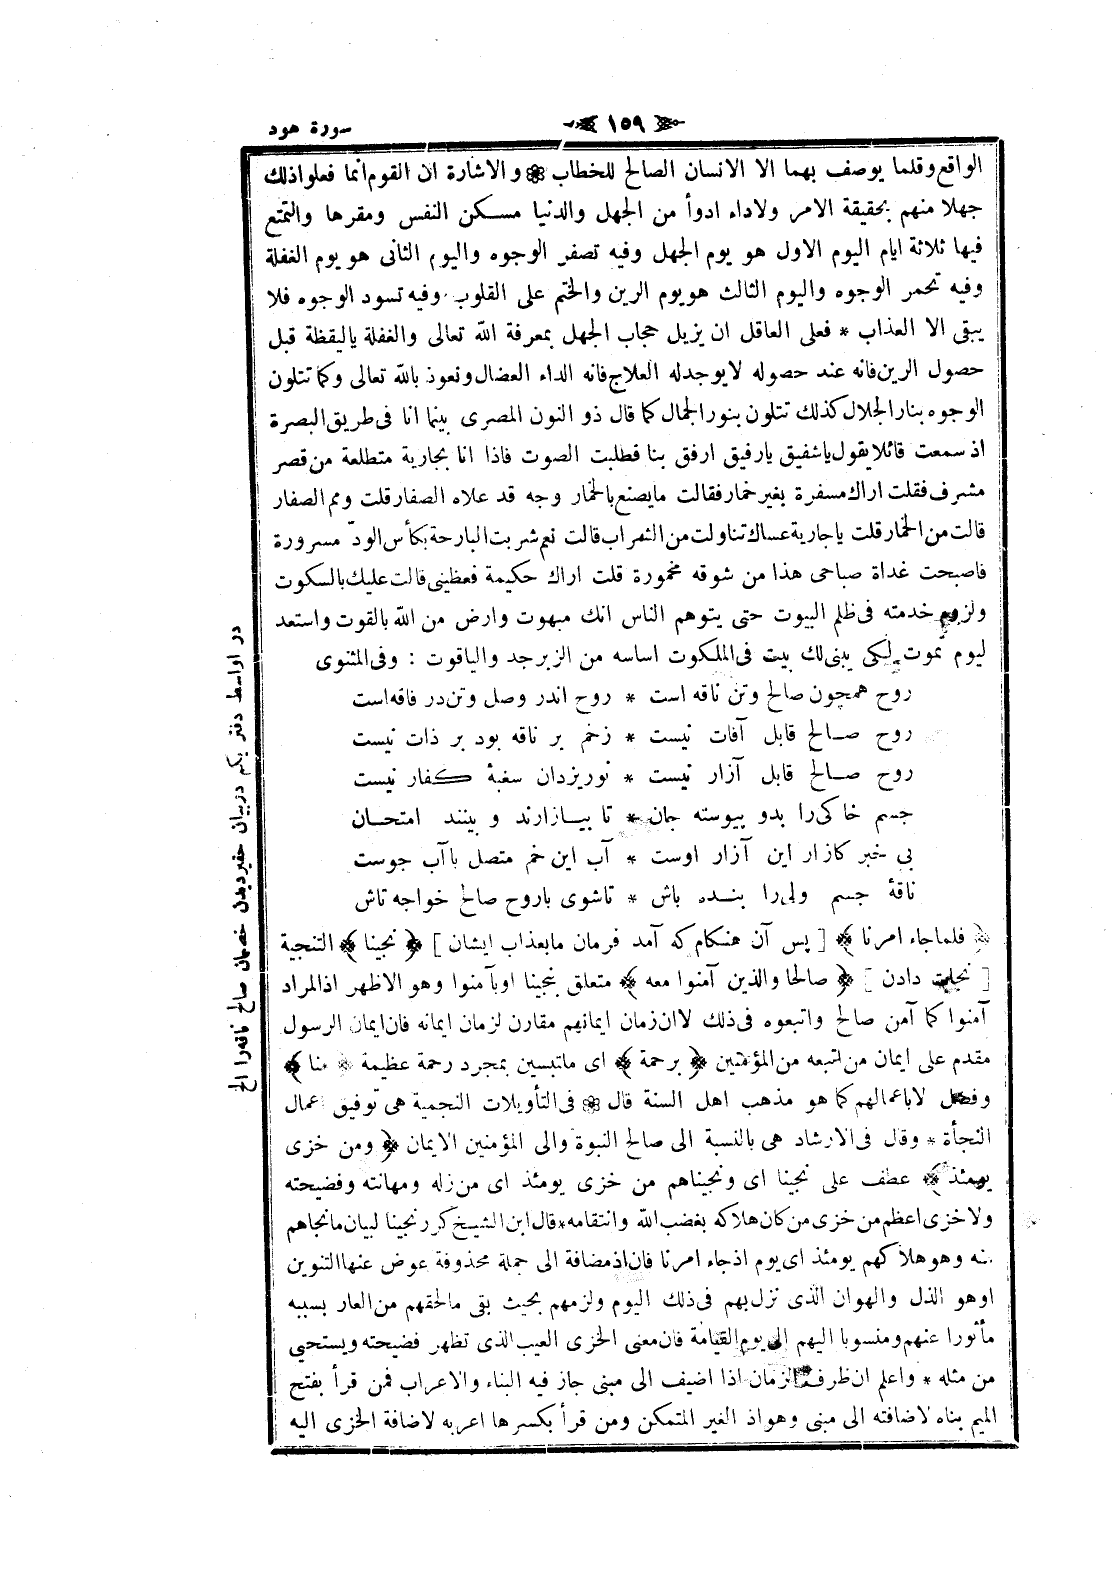 سورة هود
﴿ ١٥٩ ﴾
الواقع وقلما يوصف بهما الا الانسان الصالح للخطاب ❁ والاشارة ان القوم انما فعلوا ذلك
جهلا منهم بحقيقة الامر ولاداء ادوأ من الجهل والدنيا مسكن النفس ومقرها والتمتع
فيها ثلاثة ايام اليوم الاول هو يوم الجهل وفيه تصفر الوجوه واليوم الثانى هو يوم الغفلة
وفيه تحمر الوجوه واليوم الثالث هو يوم الرين والختم على القلوب وفيه تسود الوجوه فلا
يبقى الا العذاب * فعلى العاقل ان يزيل حجاب الجهل بمعرفة الله تعالى والغفلة باليقظة قبل
حصول الرين فانه عند حصوله لا يوجد له العلاج فانه الداء العضال ونعوذ بالله تعالى وكما تتلون
الوجوه بنار الجلال كذلك تتلون بنور الجمال كما قال ذو النون المصرى بينما انا فى طريق البصرة
اذ سمعت قائلا يقول ياشفيق يارفيق ارفق بنا فطلبت الصوت فاذا انا بجارية متطلعة من قصر
مشرف فقلت اراك مسفرة بغير خمار فقالت مايصنع بالخمار وجه قد علاه الصفار قلت ومم الصفار
قالت من الخمار قلت ياجارية عساك تناولت من الشراب قالت نعم شربت البارحة بكأس الودّ مسرورة
فاصبحت غداة صباحى هذا من شوقه مخمورة قلت اراك حكيمة فعظينى قالت عليك بالسكوت
ولزوم خدمته فى ظلم البيوت حتى يتوهم الناس انك مبهوت وارض من الله بالقوت واستعد
ليوم تموت لكى يبنى لك بيت فى الملكوت اساسه من الزبرجد والياقوت : وفى المثنوى
روح همچون صالح وتن ناقه است * روح اندر وصل وتن در فاقه است
روح صالح قابل آفات نيست * زخم بر ناقه بود بر ذات نيست
روح صالح قابل آزار نيست * نور يزدان سغبۀ كفار نيست
جسم خاكى را بدو پيوسته جان * تا بيازارند و بينند امتحان
بى خبر كازار اين آزار اوست * آب اين خم متصل با آب جوست
ناقۀ جسم ولى را بنده باش * تاشوى باروح صالح خواجه تاش
﴿ فلما جاء امرنا ﴾ [ پس آن هنكام كه آمد فرمان ما بعذاب ايشان ] ﴿ نجينا ﴾ التنجية
[ نجات دادن ] ﴿ صالحا والذين آمنوا معه ﴾ متعلق بنجينا اوبآمنوا وهو الاظهر اذ المراد
آمنوا كما آمن صالح واتبعوه فى ذلك لا ان زمان ايمانهم مقارن لزمان ايمانه فان ايمان الرسول
مقدم على ايمان من اتبعه من المؤمنين ﴿ برحمة ﴾ اى ملتبسين بمجرد رحمة عظيمة ﴿ منا ﴾
وفضل لا باعمالهم كما هو مذهب اهل السنة قال ❁ فى التأويلات النجمية هى توفيق اعمال
النجأة * وقال فى الارشاد هى بالنسبة الى صالح النبوة والى المؤمنين الايمان ﴿ ومن خزى
يومئذ ﴾ عطف على نجينا اى ونجيناهم من خزى يومئذ اى من زله ومهانته وفضيحته
ولا خزى اعظم من خزى من كان هلاكه بغضب الله وانتقامه * قال ابن الشيخ كرر نجينا لبيان مانجاهم
منه وهو هلاكهم يومئذ اى يوم اذ جاء امرنا فان اذ مضافة الى جملة محذوفة عوض عنها التنوين
اوهو الذل والهوان الذى نزل بهم فى ذلك اليوم ولزمهم بحيث بقى مالحقهم من العار بسببه
مأثورا عنهم ومنسوبا اليهم الى يوم القيامة فان معنى الخزى العيب الذى تظهر فضيحته ويستحيى
من مثله * واعلم ان ظرف الزمان اذا اضيف الى مبنى جاز فيه البناء والاعراب فمن قرأ بفتح
الميم بناه لاضافته الى مبنى وهو اذ الغير المتمكن ومن قرأ بكسرها اعربه لاضافة الخزى اليه
در اواسط دفتر يكم در بيان حقير ديدن خصمان صالح ناقه را الخ